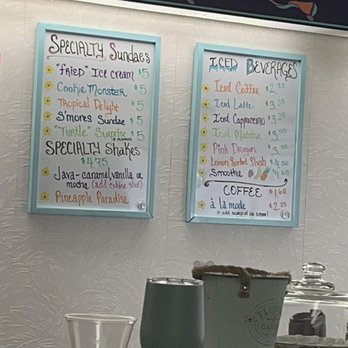 SPECIALTY SUNDAES
"FRIED" ICE CREAM $5
COOKIE MONSTER $5
TROPICAL DELIGHT $5
S'MORES SUNDAE $5
"TURTLE" $5
SPECIALTY SHAKES
$4.75
JAVA-CARAMEL, VANILLA OR
MOCHA (ADD COFFEE SHOT)
PINEAPPLE PARADISE
ICED BEVERAGES
ICED COFFEE
ICED LATTE
ICED CAPPUCCINO
ICED MATCHA
PINK DRAGON
LEMON SORBET SLUSH
SMOOTHIE
COFFEE
à la mode